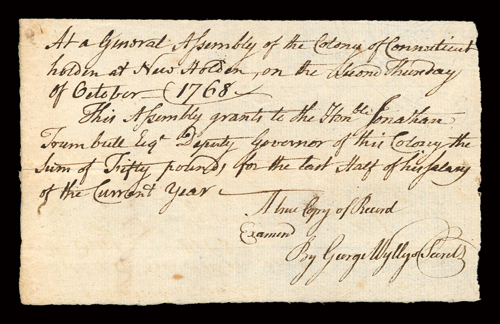 At a General Assembly of the Colony of Connecticut
holden at New Haven, on the second Thursday
of October — 1768 —
This Assembly grants to the Honble Jonathan
Trumbull Esqr Deputy Governor of this Colony the
Sum of Fifty pounds for the last Half of his Salary
of the Current Year —
A true Copy of Record
Examd
By George Wyllys Secrety